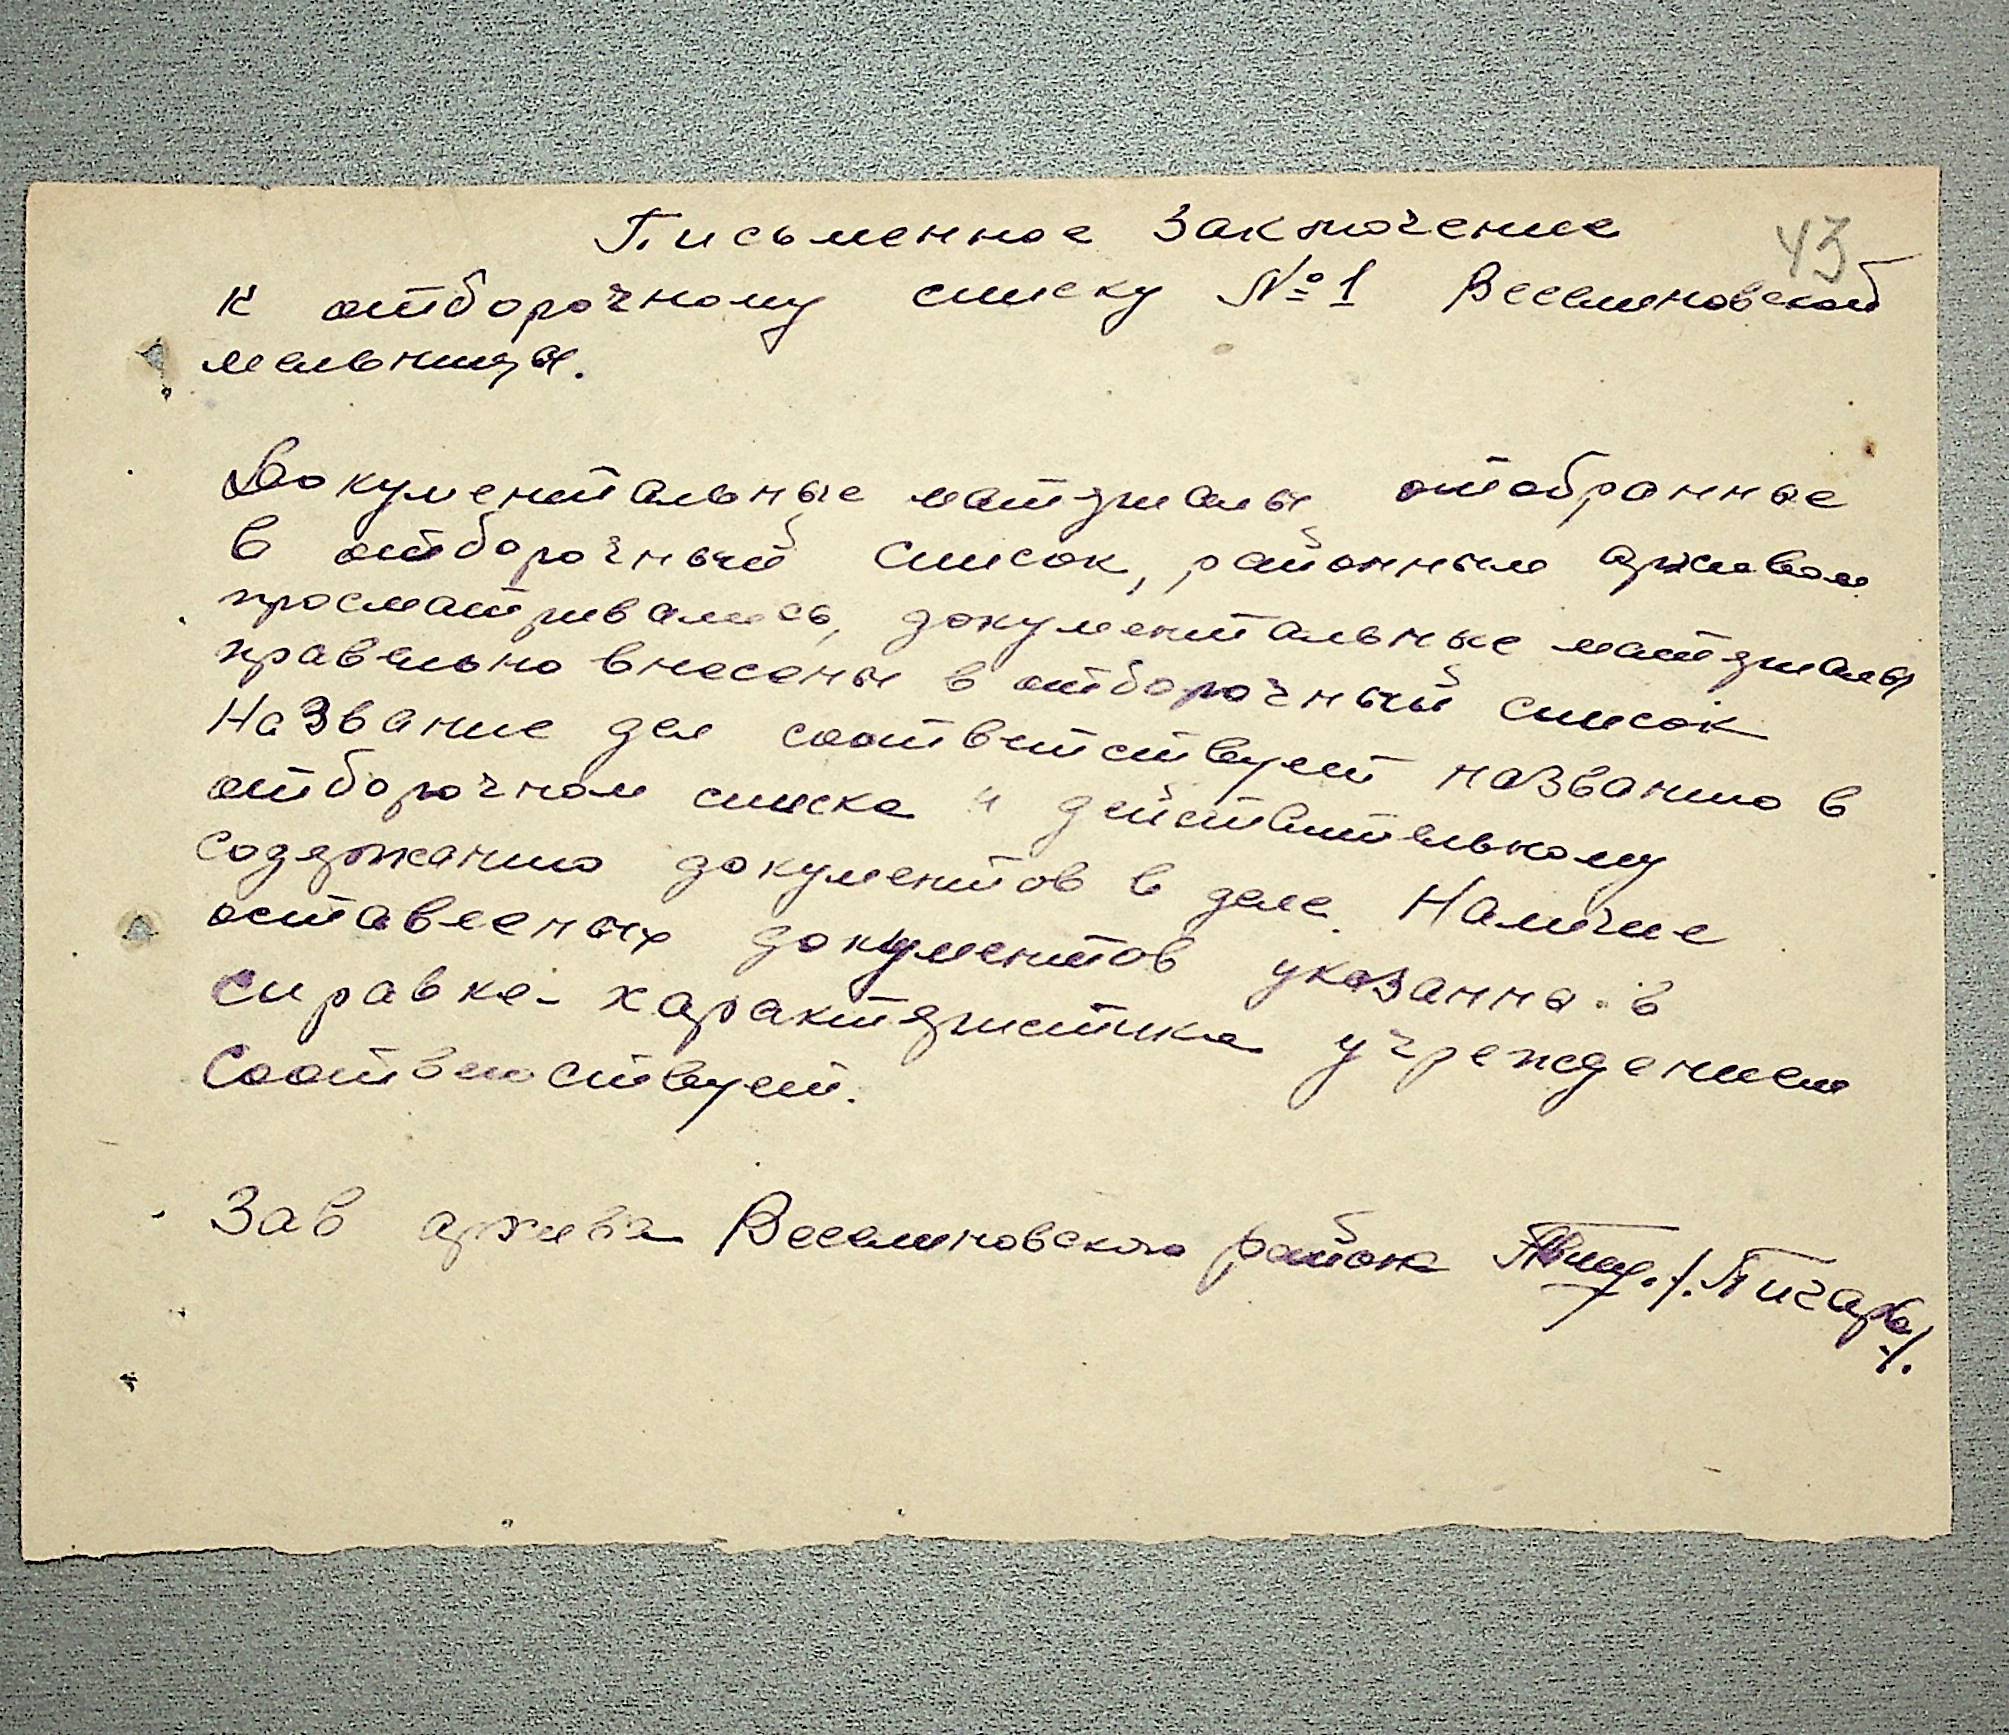 43
Письменное Заключение
к отборочному списку №1 Веселиновской
мельницы.
Документальные материалы отобранные
в отборочный список, районным архивом
просматривались, документальные материалы
правельно внесены в отборочный список
Название дел соответствует названию в
отборочном списке и действительному
содержанию документов в деле. Наличие
оставленых документов указанна в
справке-характеристике учреждением
соответствует.
Зав архива Веселиновского района /.Пигарь/.